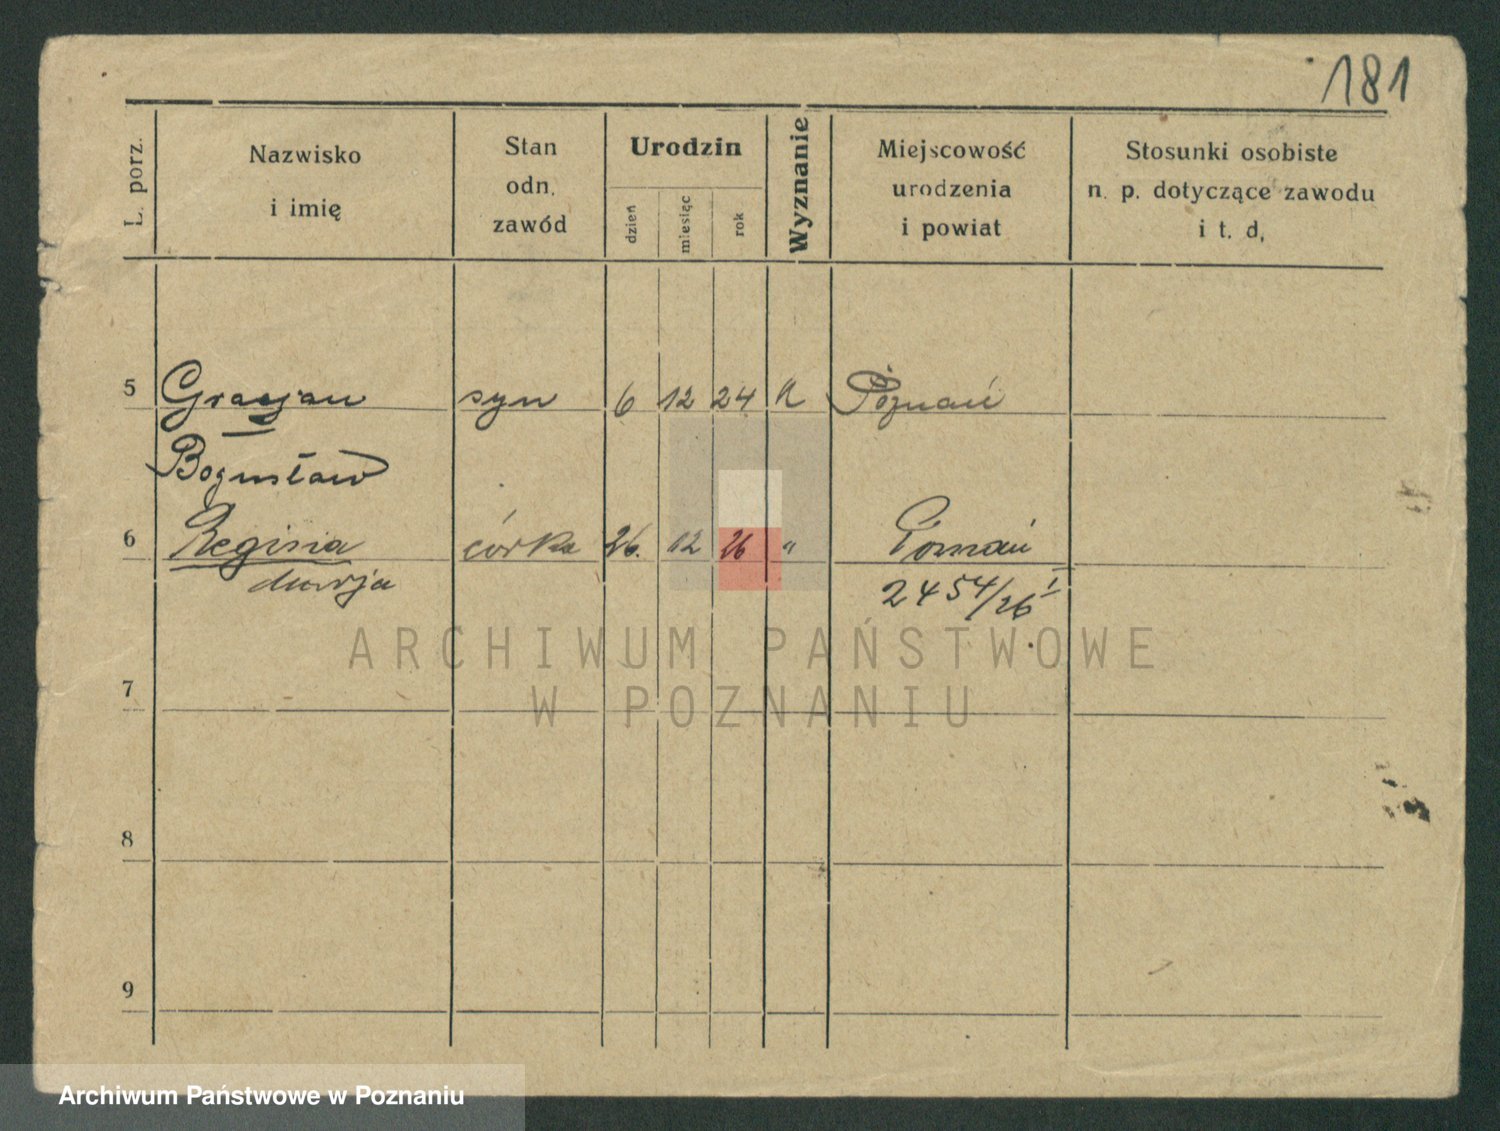 181
L. porz.
Nazwisko
i imię
Stan
odn.
zawód
Urodzin
dzień
miesiąc
rok
Wyznanie
Miejscowość
urodzenia
i powiat
Stosunki osobiste
n. p. dotyczące zawodu
i t. d.
5 syn 6 12 24 Poznań
Bogusław
6 córka 26. 12 26 " Poznań
2454/26 I
ARCHIWUM PAŃSTWOWE
W POZNANIU
7
8
9
Archiwum Państwowe w Poznaniu